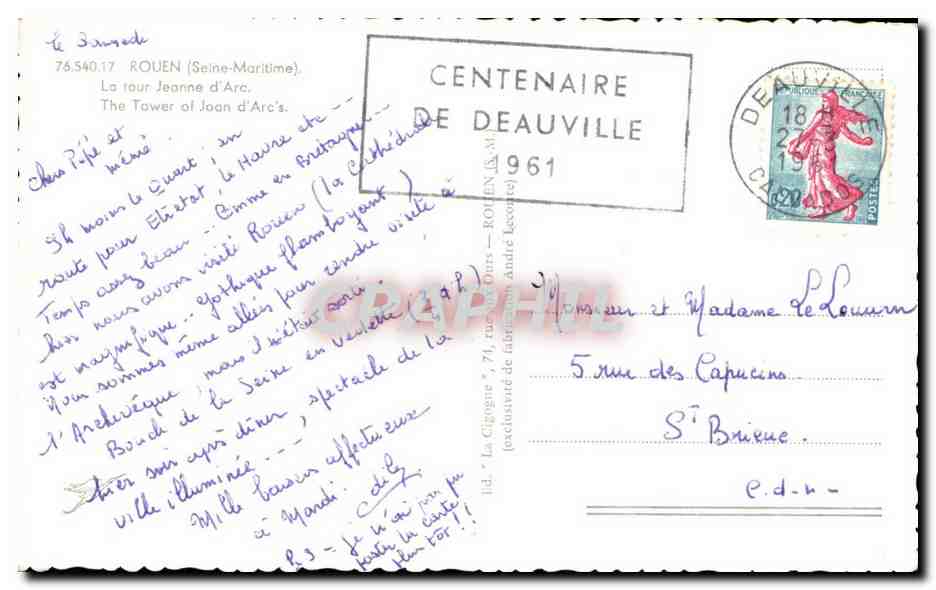 le Samedi
76.540.17 ROUEN (Seine-Maritime).
La tour Jeanne d'Arc.
The Tower of Joan d'Arc's.
Chers Pépé et
mémé
9h moins le Quart, en
route pour Etretat, le Havre etc --
Temps assez beau .. Comme en Bretagne --
hier nous avons visité Rouen (la Cathédrale
est magnifique .. Gothique flamboyant)
Nous sommes même allées pour rendre visite à
l'Archevêque, mais il était sorti.
Bords de la Seine en vedette (3/4 h)
hier soir après dîner, spectacle de la
ville illuminée --
Mille baisers affectueux
à Mardi.
P.S - je n'ai pu
poster la carte
plus tôt !!
CENTENAIRE
DE DEAUVILLE
1961
DEAUVILLE
18 H
CALVADOS
REPUBLIQUE FRANÇAISE
0,20
POSTES
Ed. "La Cigogne", 74, rue aux Ours — ROUEN (S.-M.)
(exclusivité de fabrication André Leconte)
CPAPHIL
Monsieur et Madame Le Louarn
5 rue des Capucins
St Brieuc.
C.d.N-